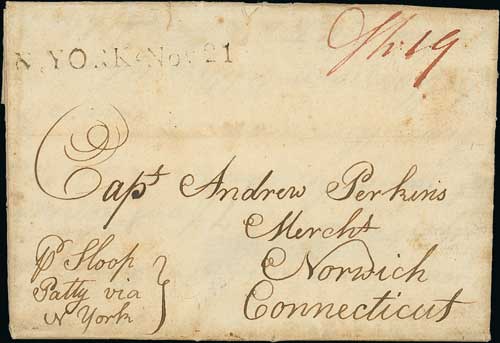 N. YORK * Nov 21
Sh: 19
Capt Andrew Perkins
Mercht
Norwich
Connecticut
pr Sloop
Patty via
N York